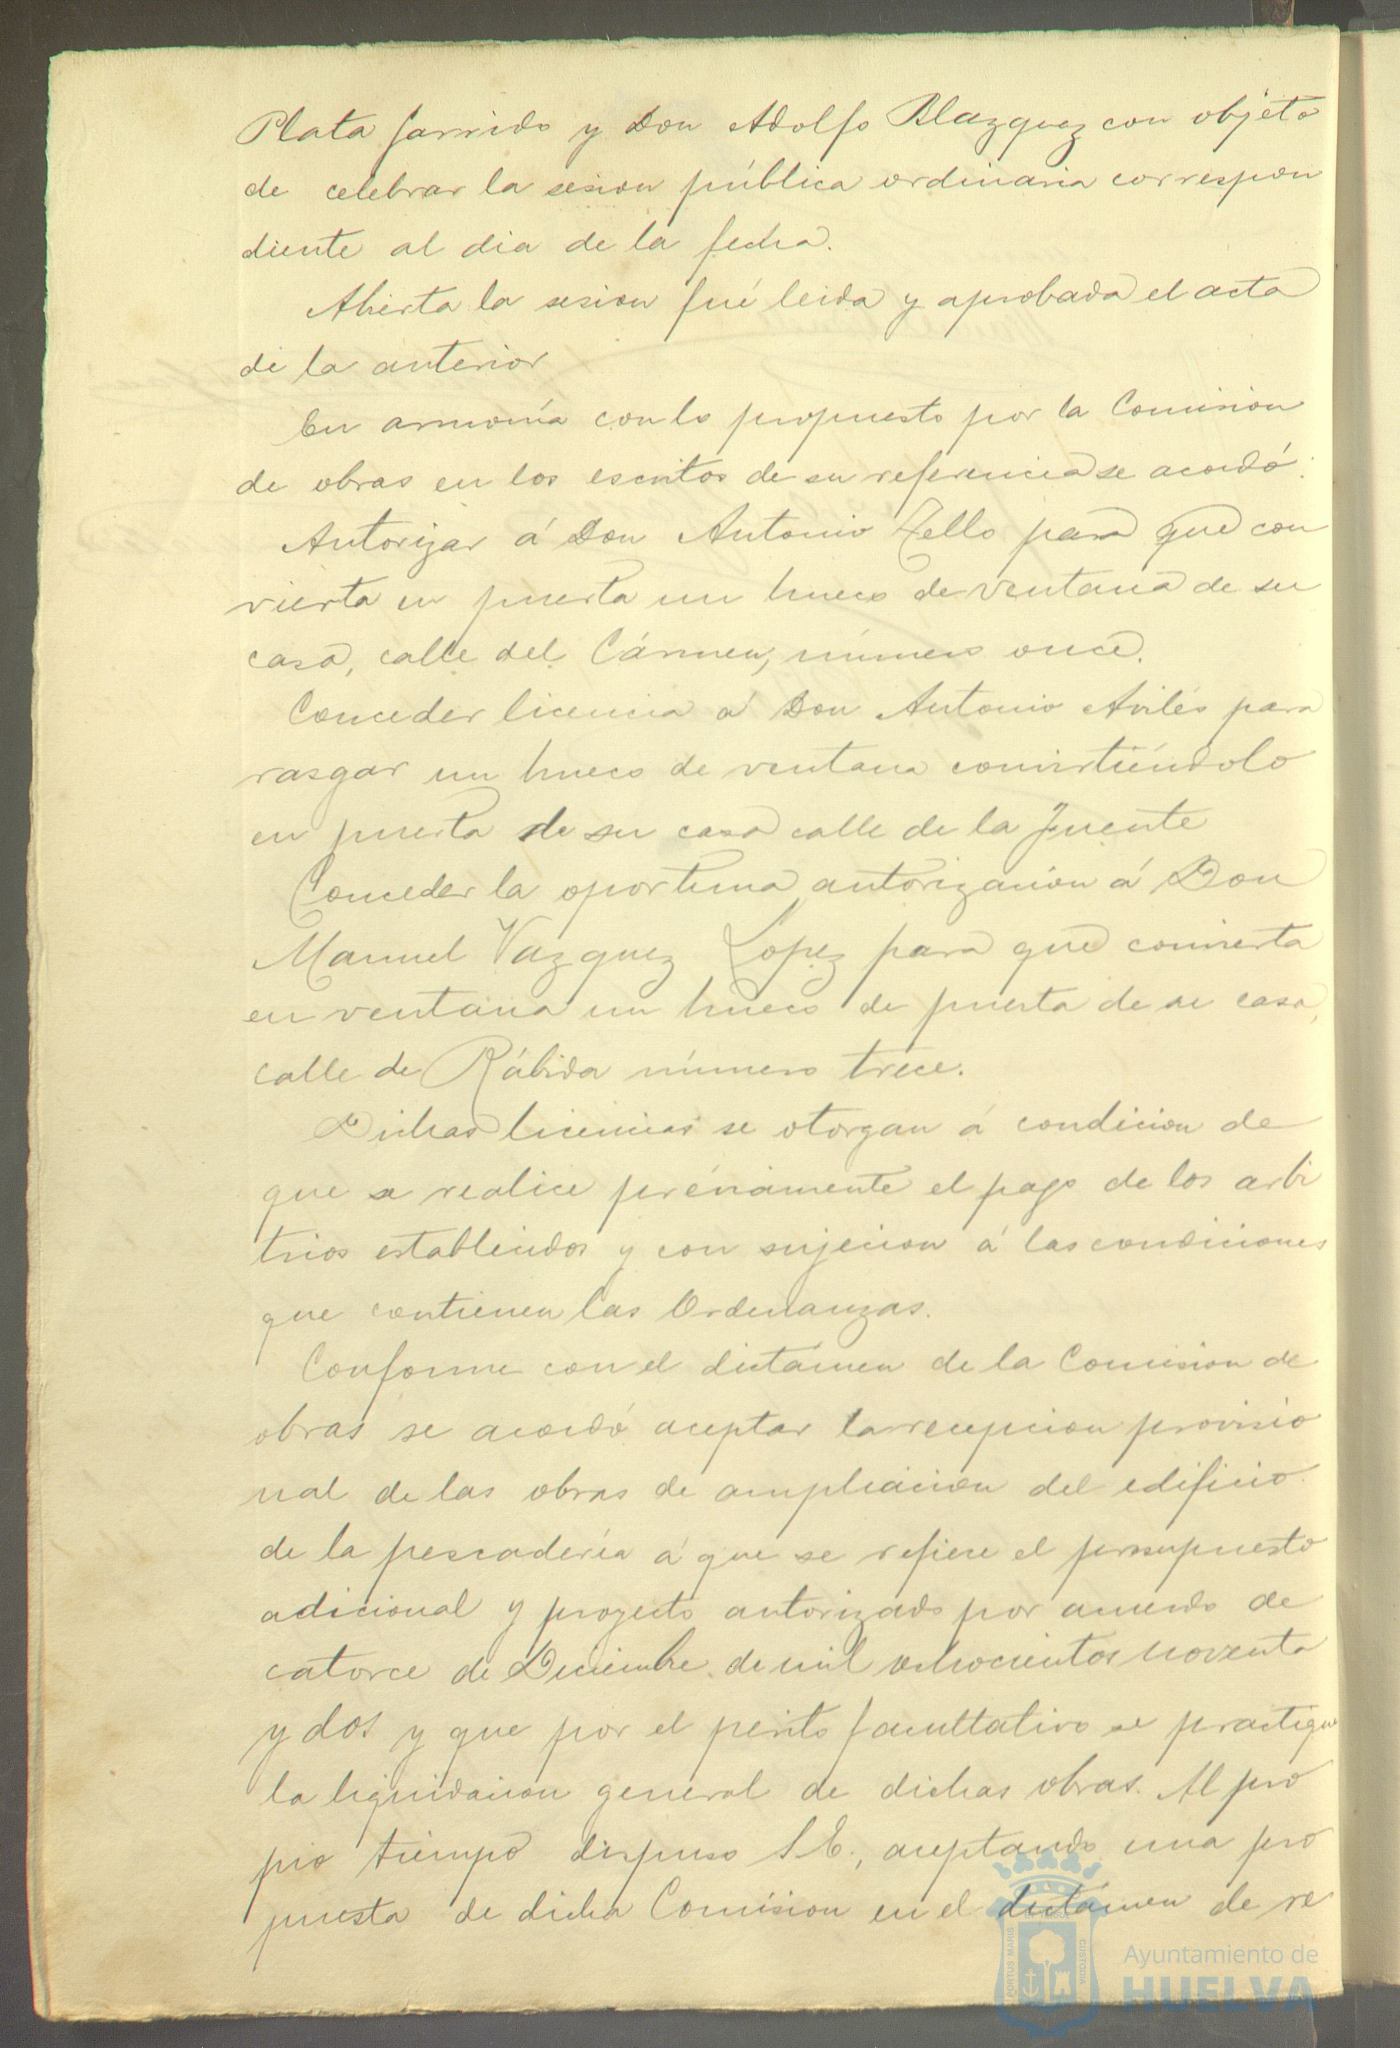 Plata Garrido y Don Adolfo Blazquez con objeto
de celebrar la sesion pública ordinaria correspon
diente al dia de la fecha.
Abierta la sesion fué leida y aprobada el acta
de la anterior
En armonía con lo propuesto por la Comision
de obras en los escritos de su referencia se acordó:
Autorizar á Don Antonio Tello para que con
vierta en puerta un hueco de ventana de su
casa, calle del Cármen, número once.
Conceder licencia á Don Antonio Avilés para
rasgar un hueco de ventana convirtiéndolo
en puerta de su casa calle de la Fuente
Conceder la oportuna autorizacion á Don
Manuel Vazquez Lopez para que convierta
en ventana un hueco de puerta de su casa,
calle de Rábida número trece.
Dichas licencias se otorgan á condicion de
que se realice préviamente el pago de los arbi
trios establecidos y con sujecion á las condiciones
que contienen las Ordenanzas.
Conforme con el dictámen de la Comision de
obras se acordó aceptar la recepcion provisio
nal de las obras de ampliacion del edificio
de la pescadería á que se refiere el presupuesto
adicional y proyecto autorizado por acuerdo de
catorce de Diciembre de mil ochocientos noventa
y dos y que por el perito facultativo se practique
la liquidacion general de dichas obras. Al pro
pio tiempo dispuso S. E., aceptando una pro
puesta de dicha Comision en el dictámen de re
PORTUS MARIS
CUSTODIA
Ayuntamiento de
HUELVA